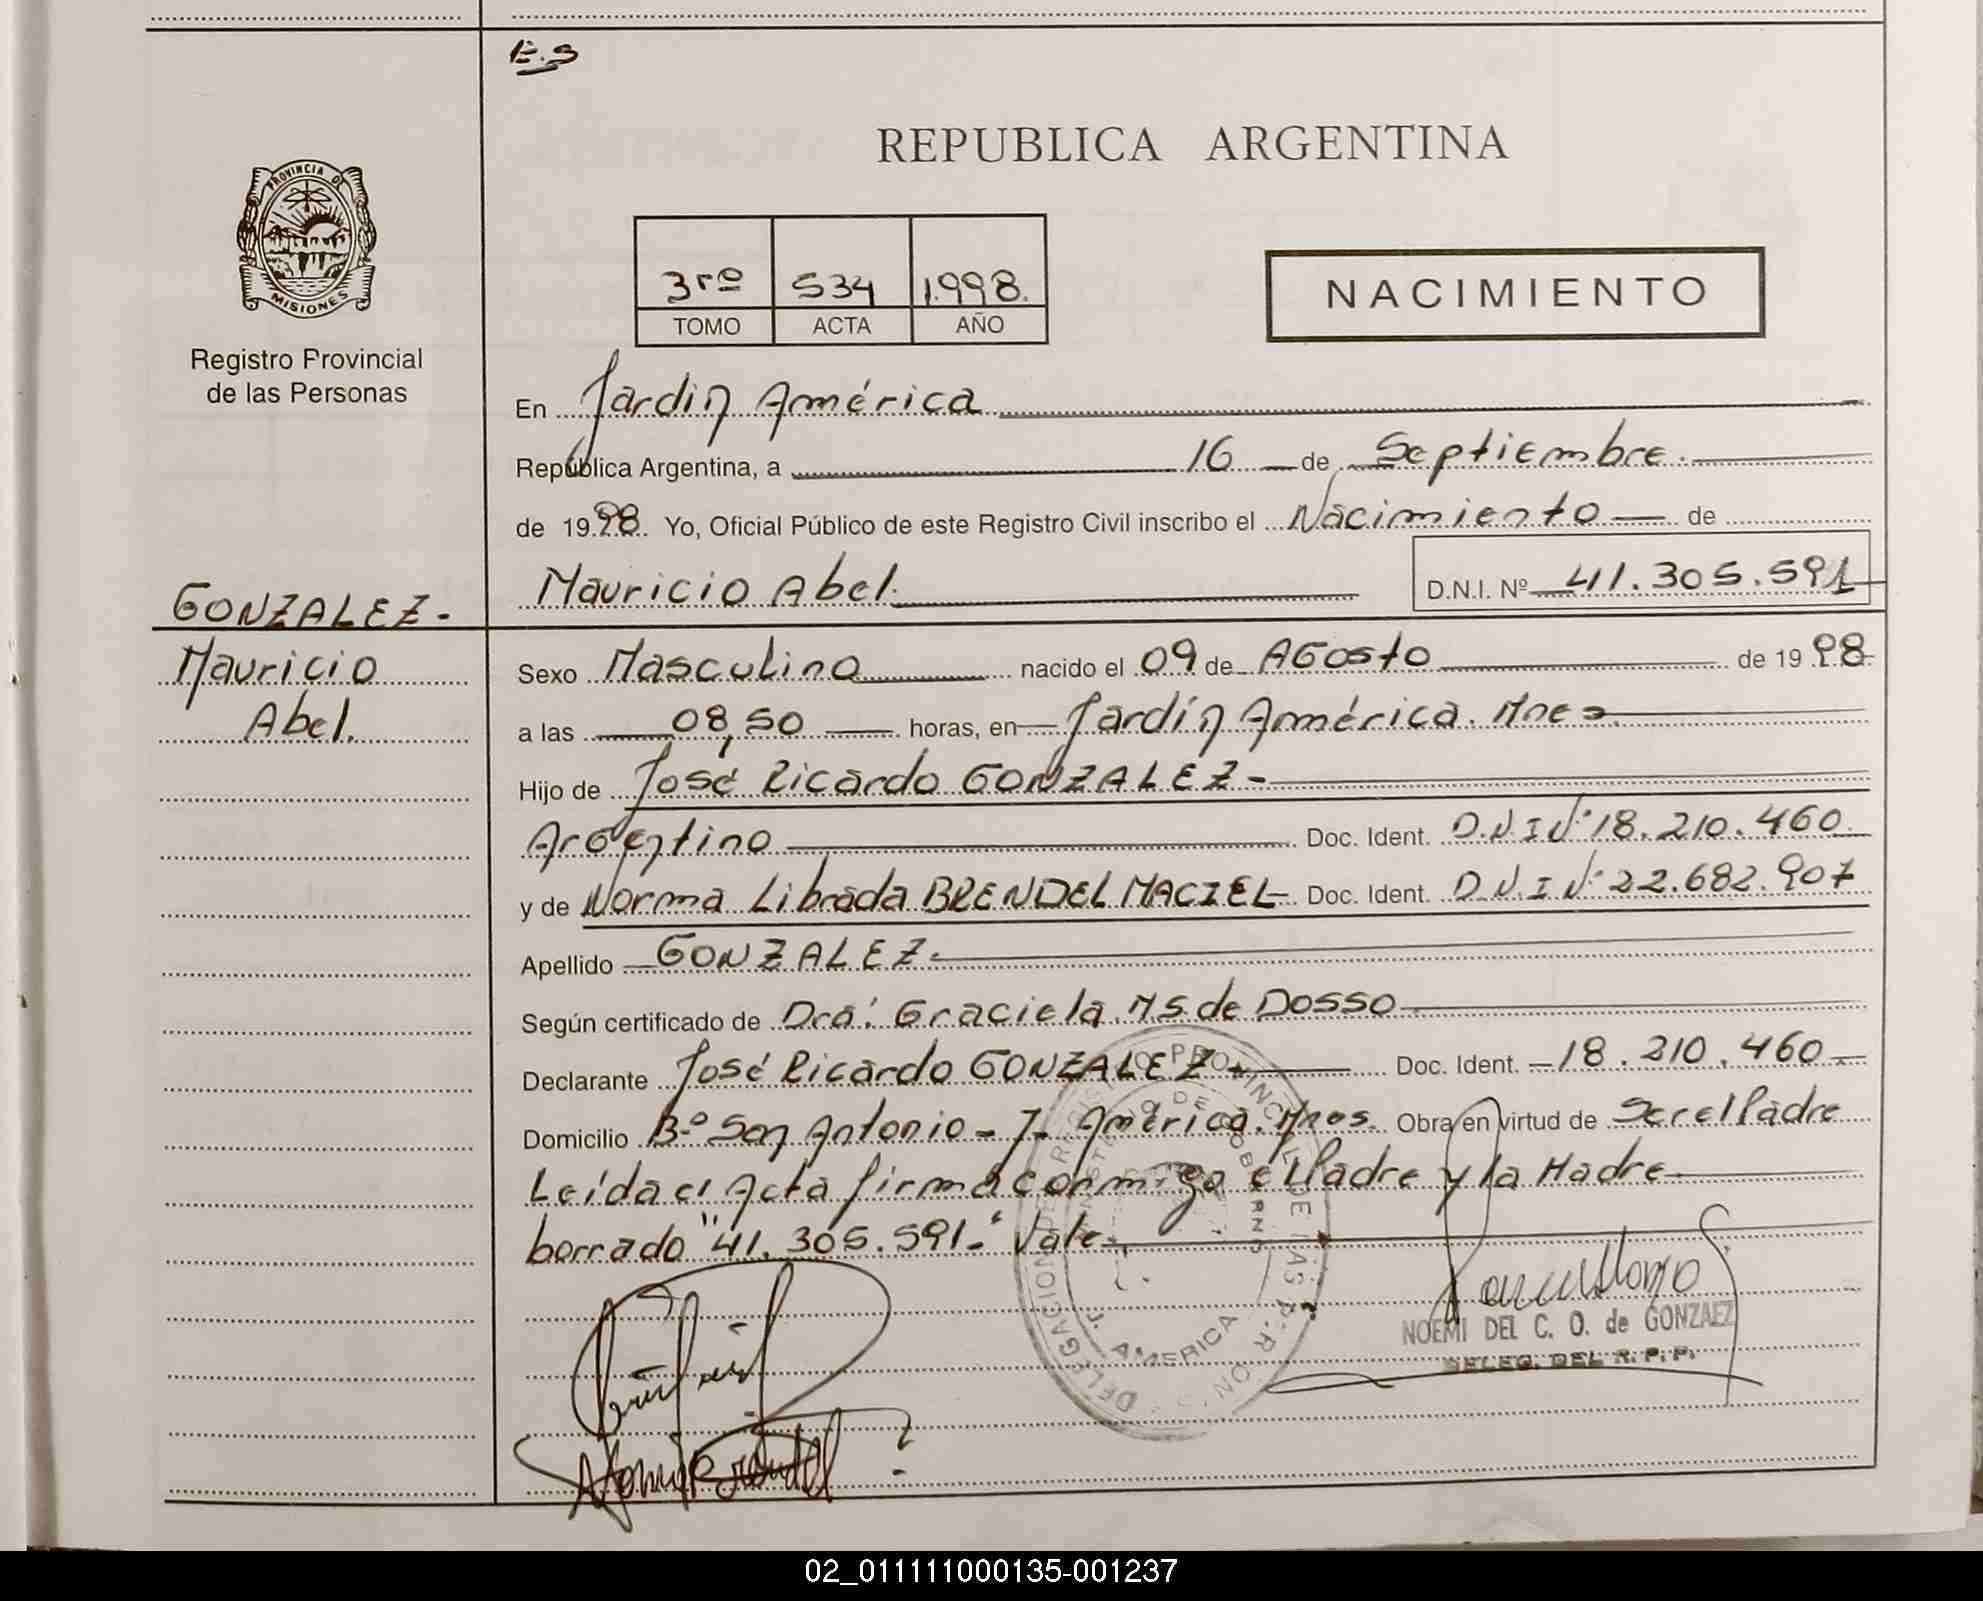 E.S
REPUBLICA ARGENTINA
PROVINCIA DE
MISIONES
Registro Provincial
de las Personas
3ro 534 1.998.
TOMO ACTA AÑO
NACIMIENTO
En Jardin América
República Argentina, a 16 de Septiembre.
de 1998. Yo, Oficial Público de este Registro Civil inscribo el Nacimiento de
Mauricio Abel. D.N.I. Nº 41.305.591
GONZALEZ-
Mauricio
Abel.
Sexo Masculino nacido el 09 de AGosto de 1998
a las 08,50 horas, en Jardín América. Mnes
Hijo de José Ricardo GONZALEZ-
ArGentino Doc. Ident. D.N.I Nº 18.210.460
y de Norma Librada BRENDEL MACIEL Doc. Ident. D.N.I Nº 22.682.907
Apellido GONZALEZ-
Según certificado de Dra: Graciela MS de Dosso
Declarante José Ricardo GONZALEZ- Doc. Ident. 18.210.460
Domicilio Bº San Antonio - J- América. Mnes. Obra en virtud de Ser el Padre
Leída el Acta firma conmigo el Padre y la Madre
borrado "41.305.591-" Vale
DELEGACION J. AMERICA
NOEMI DEL C. O. de GONZAEZ
DELEG. DEL R. P. P.
02_011111000135-001237